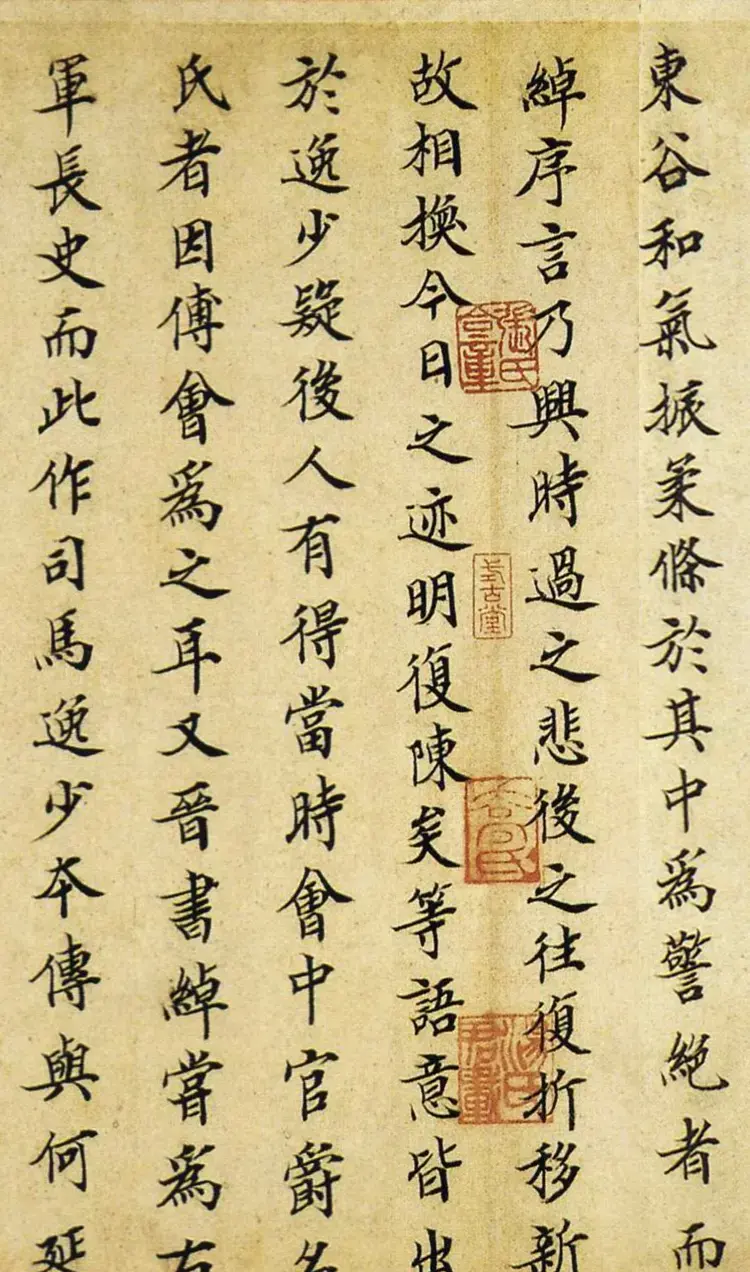 東谷和氣振柔條於其中為警絕者而
綽序言乃興時過之悲後之往復折移新
故相換今日之迹明復陳矣等語意皆出
於逸少疑後人有得當時會中官爵名
氏者因傅會為之耳又晉書綽嘗為右
軍長史而此作司馬逸少本傳與何延